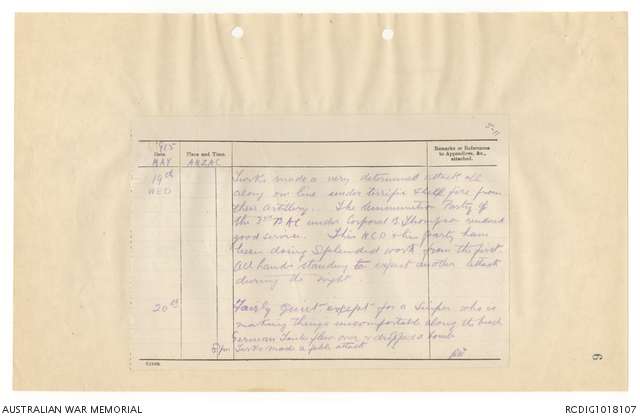 5-11
1915
Date. Place and Time. Remarks or References to Appendices, &c., attached.
MAY ANZAC
19th Turks made a very determined attack all
WED along our line under terrific shell fire from
their artillery. The Ammunition Party of
the 3rd BAC under Corporal B Thompson rendered
good service. This NCO & his party have
been doing splendid work from the first
All hands standing to expect another attack
during the night.
20th Fairly quiet except for a Sniper who is
making things uncomfortable along the beach
German Taube flew over & dropped a bomb
8 pm Turks made a feeble attack
9
AUSTRALIAN WAR MEMORIAL
RCDIG1018107